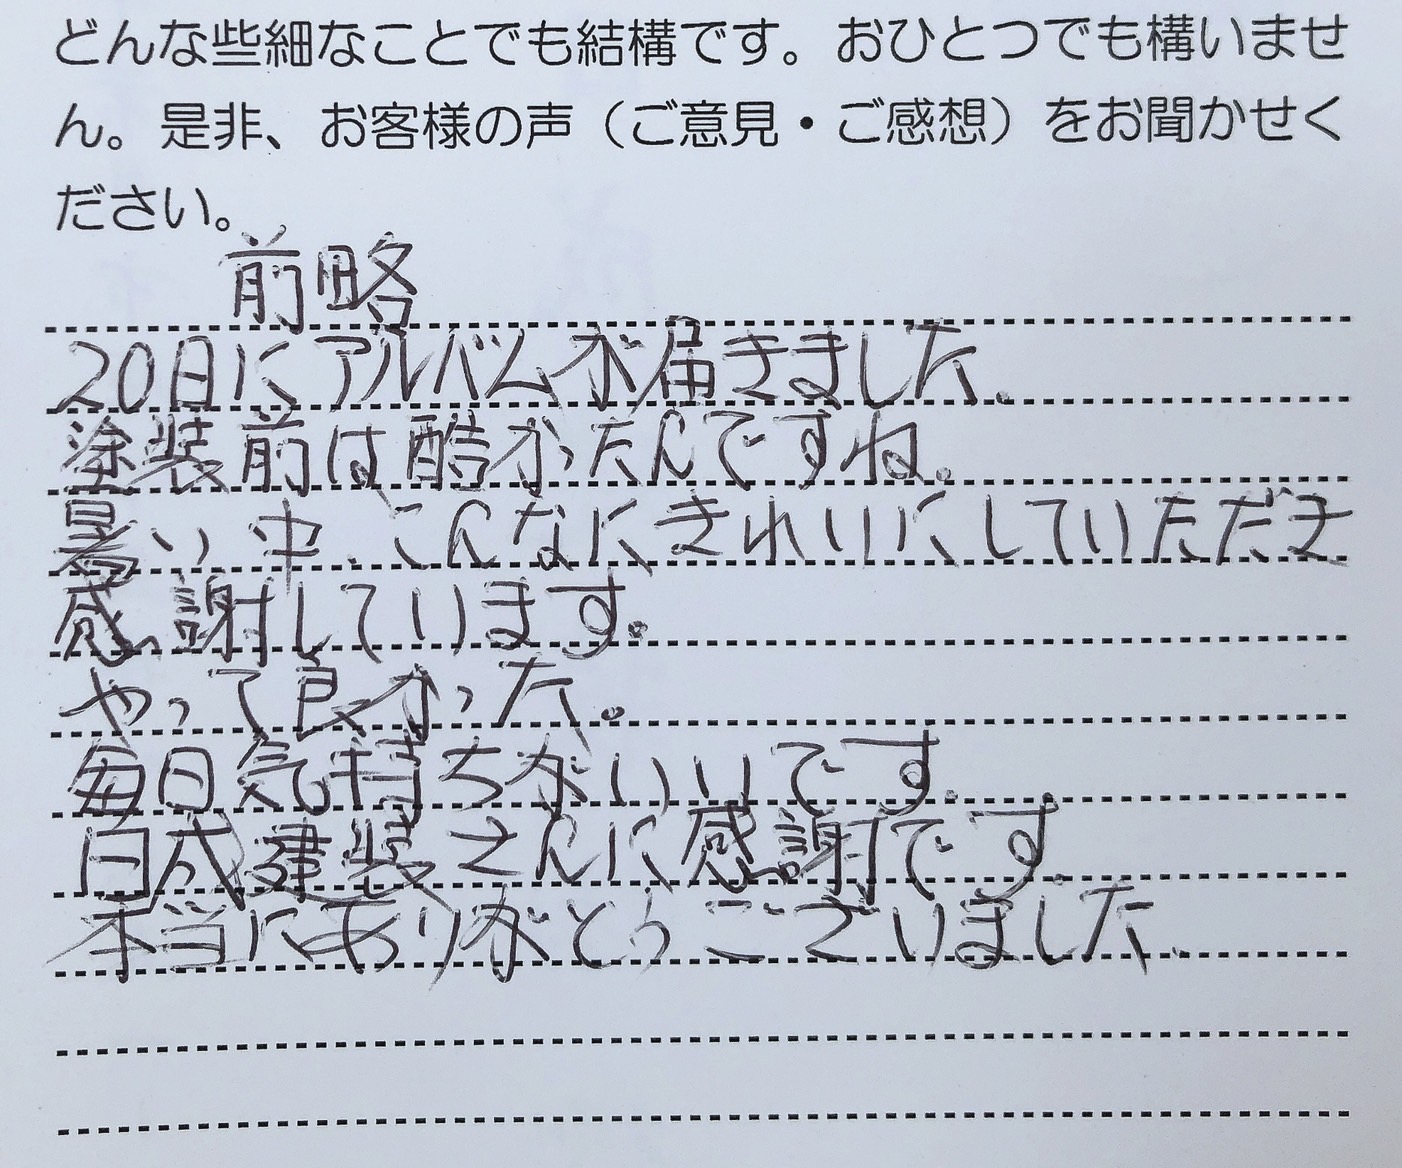 どんな些細なことでも結構です。おひとつでも構いませ
ん。是非、お客様の声（ご意見・ご感想）をお聞かせく
ださい。
前略
20日にアルバムが届きました。
塗装前は酷かったんですね。
暑い中、こんなにきれいにしていただき
感謝しています。
やって良かった。
毎日気持ちがいいです。
日成建装さんに感謝です。
本当にありがとうございました。